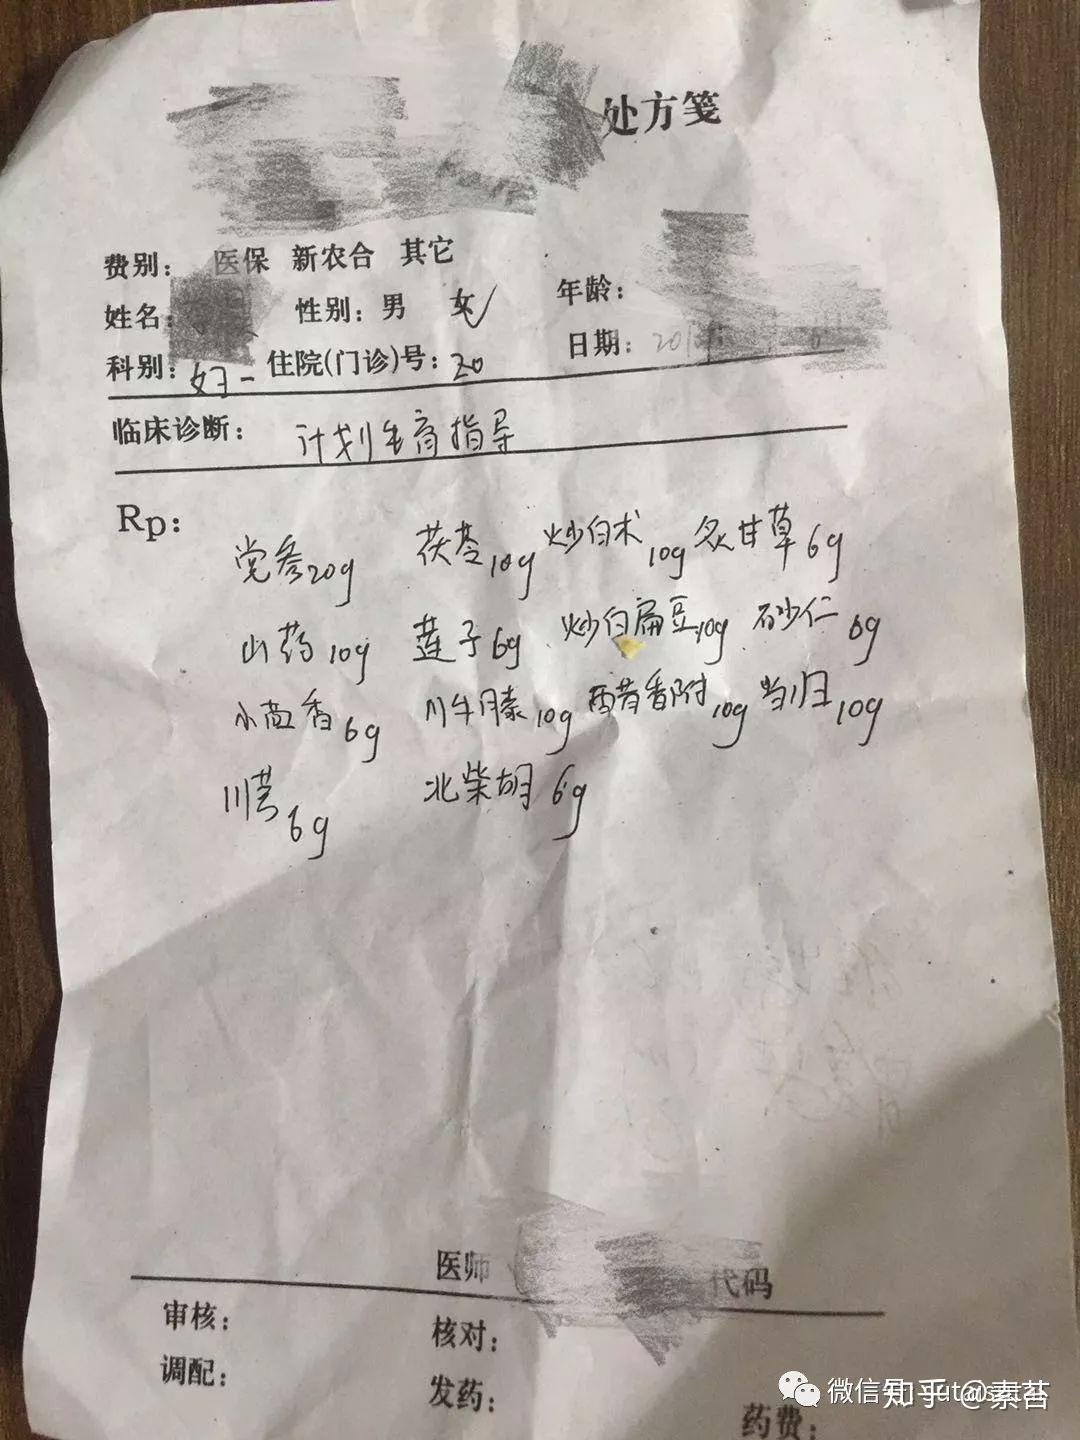 处方笺
费别： 医保 新农合 其它
姓名： 性别：男 女✓ 年龄：
科别：妇一 住院(门诊)号：20 日期：
临床诊断： 计划生育指导
Rp：
党参20g 茯苓10g 炒白术10g 炙甘草6g
山药10g 莲子6g 炒白扁豆10g 砂仁6g
小茴香6g 川牛膝10g 醋香附10g 当归10g
川芎6g 北柴胡6g
医师 代码
审核： 核对：
调配： 发药： 药费：
微信号
知乎 @素苔